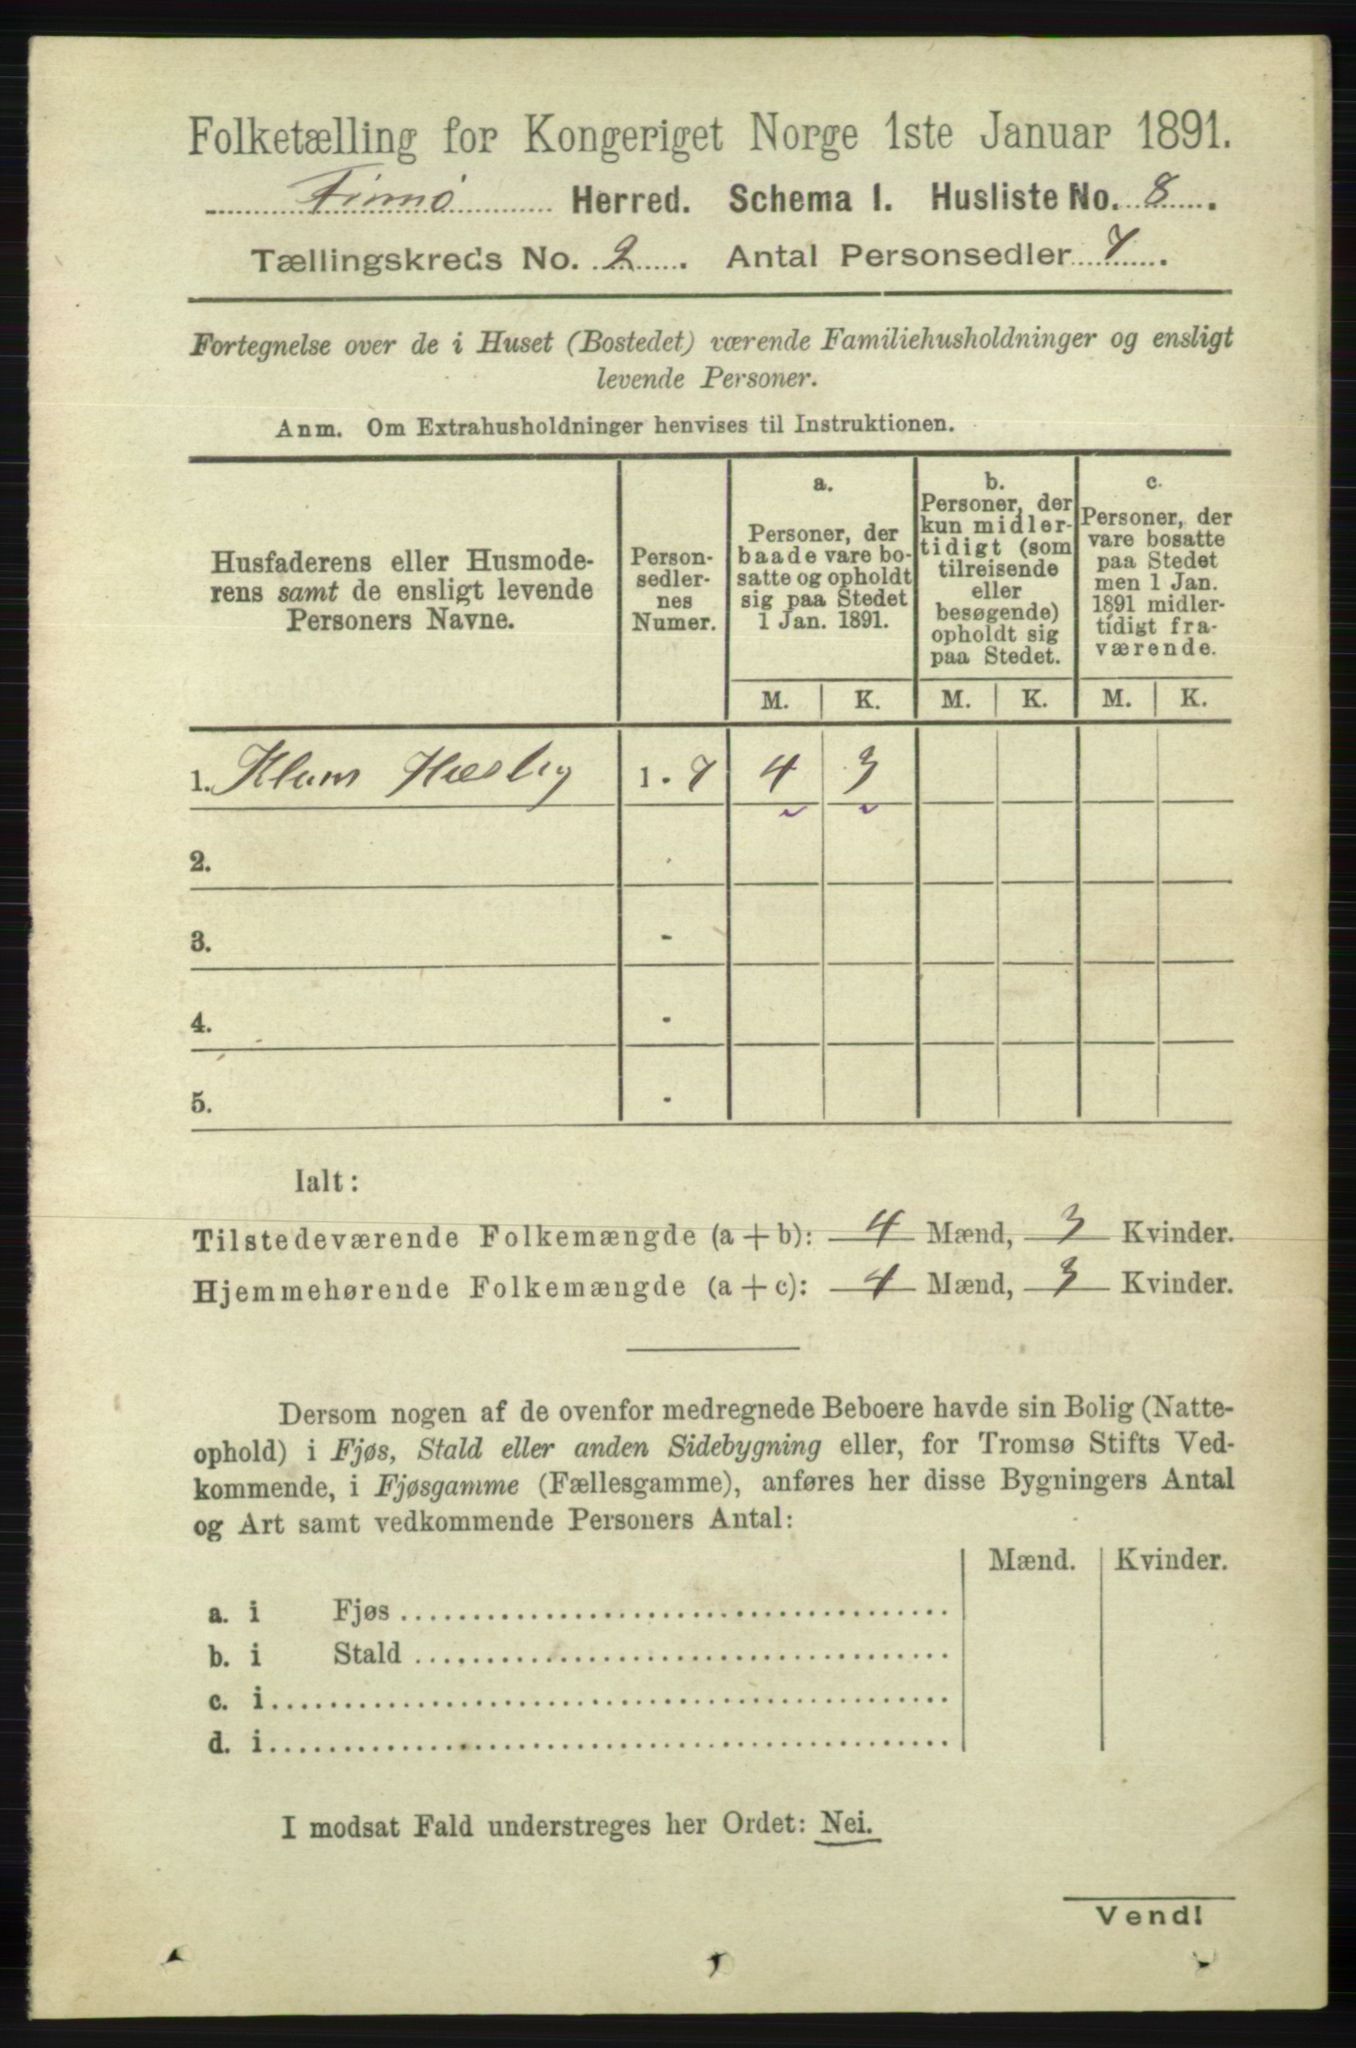 Folketælling for Kongeriget Norge 1ste Januar 1891.
Finnø Herred. Schema 1. Husliste No. 8.
Tællingskreds No. 2. Antal Personsedler 7.
Fortegnelse over de i Huset (Bostedet) værende Familiehusholdninger og ensligt
levende Personer.
Anm. Om Extrahusholdninger henvises til Instruktionen.
Husfaderens eller Husmode-
rens samt de ensligt levende
Personers Navne.
Person-
sedler-
nes
Numer.
a.
Personer, der
baade vare bo-
satte og opholdt
sig paa Stedet
1 Jan. 1891.
b.
Personer, der
kun midler-
tidigt (som
tilreisende
eller
besøgende)
opholdt sig
paa Stedet.
c.
Personer, der
vare bosatte
paa Stedet
men 1 Jan.
1891 midler-
tidigt fra-
værende.
M. K. M. K. M. K.
1. Hesby 1 - 7 4 3
2. -
3. -
4. -
5. -
Ialt:
Tilstedeværende Folkemængde (a + b): 4 Mænd, 3 Kvinder.
Hjemmehørende Folkemængde (a + c): 4 Mænd, 3 Kvinder.
Dersom nogen af de ovenfor medregnede Beboere havde sin Bolig (Natte-
ophold) i Fjøs, Stald eller anden Sidebygning eller, for Tromsø Stifts Ved-
kommende, i Fjøsgamme (Fællesgamme), anføres her disse Bygningers Antal
og Art samt vedkommende Personers Antal:
Mænd. Kvinder.
a. i Fjøs
b. i Stald
c. i
d. i
I modsat Fald understreges her Ordet: Nei.
Vend!